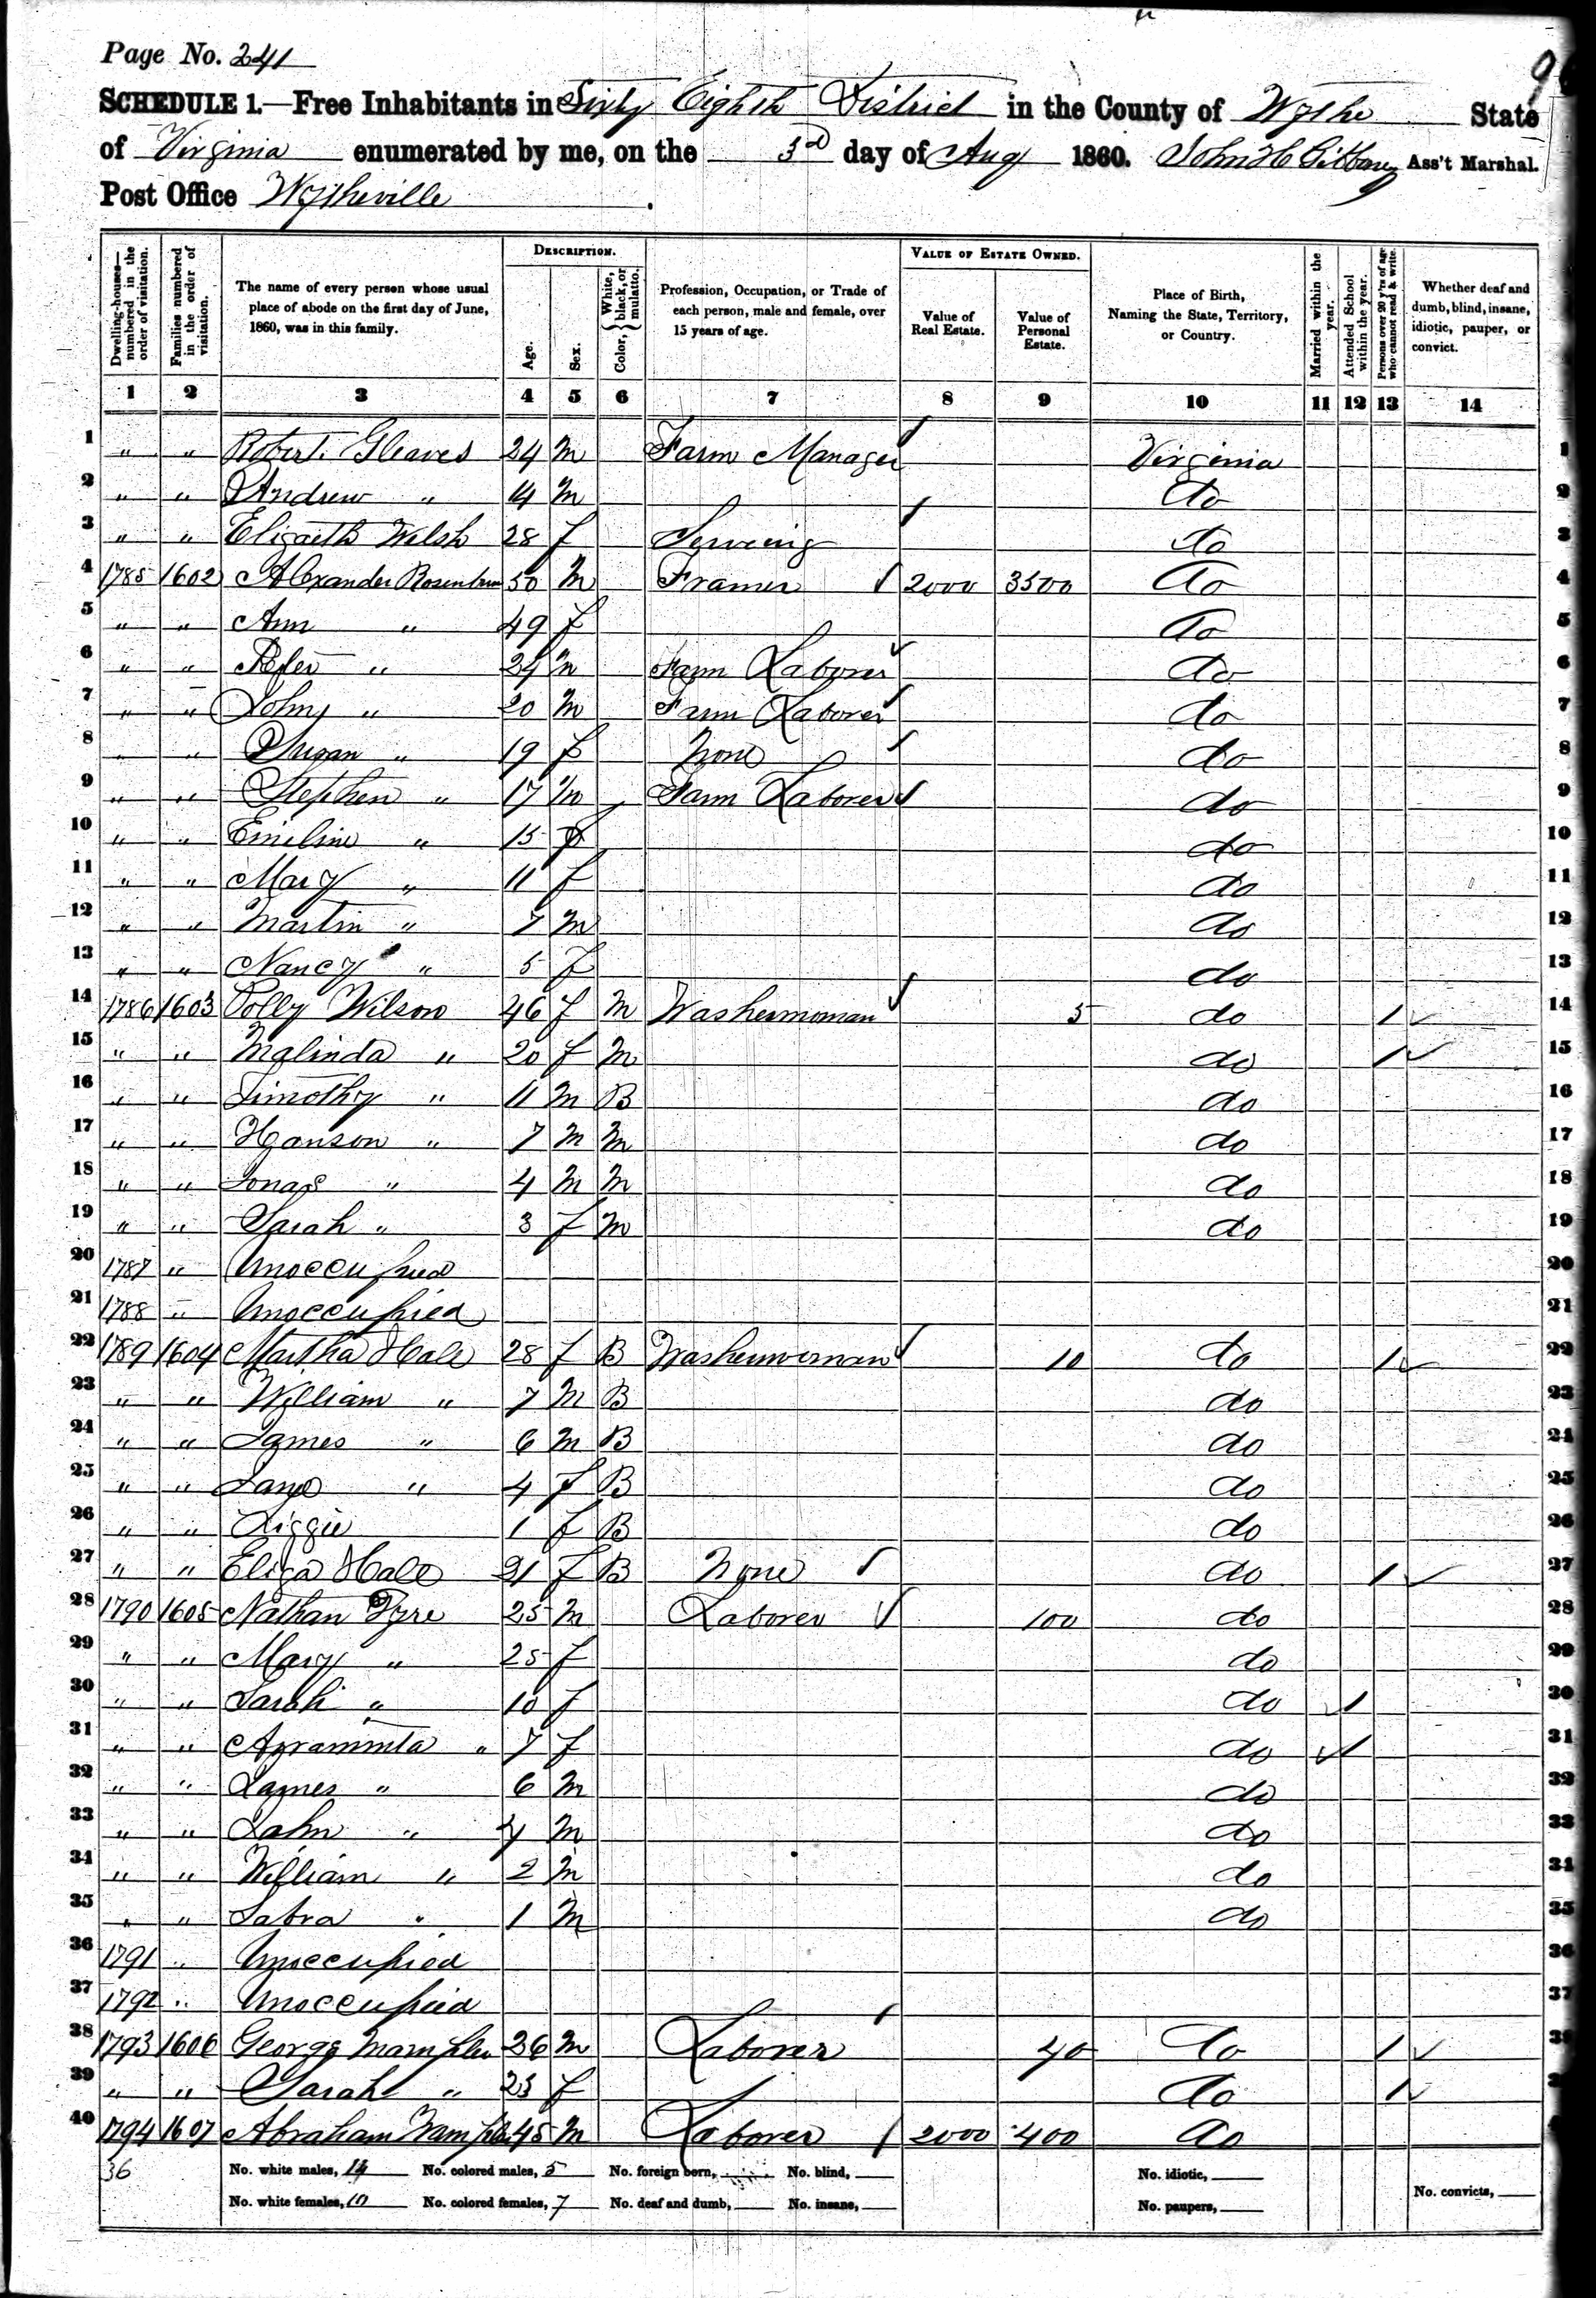 Page No. 241
SCHEDULE 1.—Free Inhabitants in Sixty Eighth District in the County of Wythe State
of Virginia enumerated by me, on the 3d day of Aug 1860. John H Ass't Marshal.
Post Office Wytheville
Dwelling-houses—numbered in the order of visitation.
Families numbered in the order of visitation.
The name of every person whose usual place of abode on the first day of June, 1860, was in this family.
DESCRIPTION.
Age.
Sex.
Color, White, black, or mulatto.
Profession, Occupation, or Trade of each person, male and female, over 15 years of age.
VALUE OF ESTATE OWNED.
Value of Real Estate.
Value of Personal Estate.
Place of Birth, Naming the State, Territory, or Country.
Married within the year.
Attended School within the year.
Persons over 20 y'rs of age who cannot read & write.
Whether deaf and dumb, blind, insane, idiotic, pauper, or convict.
1 2 3 4 5 6 7 8 9 10 11 12 13 14
1 " " Robert Gleaves 24 m Farm Manager Virginia 1
2 " " Andrew " 14 m do 2
3 " " Elizaeth Welsh 28 f do 3
4 1785 1602 Alexander Rosenbum 50 m Framer 2000 3500 do 4
5 " " Ann " 49 f do 5
6 " " Peter " 24 m Farm Laborer do 6
7 " " John " 20 m Farm Laborer do 7
8 " " Susan " 19 f None do 8
9 " " Stephen " 17 m Farm Laborer do 9
10 " " Emeline " 15 f do 10
11 " " Mary " 11 f do 11
12 " " Martin " 7 m do 12
13 " " Nancy " 5 f do 13
14 1786 1603 Polly Wilson 46 f m Washerwoman 5 do 1 14
15 " " Malinda " 20 f m do 1 15
16 " " Timothy " 11 m B do 16
17 " " Hanson " 7 m m do 17
18 " " Jonas " 4 m m do 18
19 " " Sarah " 3 f m do 19
20 1787 " Unoccupied 20
21 1788 " Unoccupied 21
22 1789 1604 Martha Hale 28 f B Washerwoman 10 do 1 22
23 " " William " 7 m B do 23
24 " " James " 6 m B do 24
25 " " Jane " 4 f B do 25
26 " " Lizzie 1 f B do 26
27 " " Eliza Hale 21 f B None do 1 27
28 1790 1605 Nathan Tyre 25 m Laborer 100 do 28
29 " " Mary " 25 f do 29
30 " " Sarah " 10 f do 1 30
31 " " " 7 f do 1 31
32 " " James " 6 m do 32
33 " " John " 4 m do 33
34 " " William " 2 m do 34
35 " " " 1 m do 35
36 1791 " Unoccupied 36
37 1792 " Unoccupied 37
38 1793 1606 George 26 m Laborer 40 do 1 38
39 " " Sarah " 23 f do 1
40 1794 1607 Abraham 45 m Laborer 2000 400 do
36 No. white males, 14 No. colored males, 5 No. foreign born, No. blind, No. idiotic,
No. white females, 10 No. colored females, 7 No. deaf and dumb, No. insane, No. paupers, No. convicts,